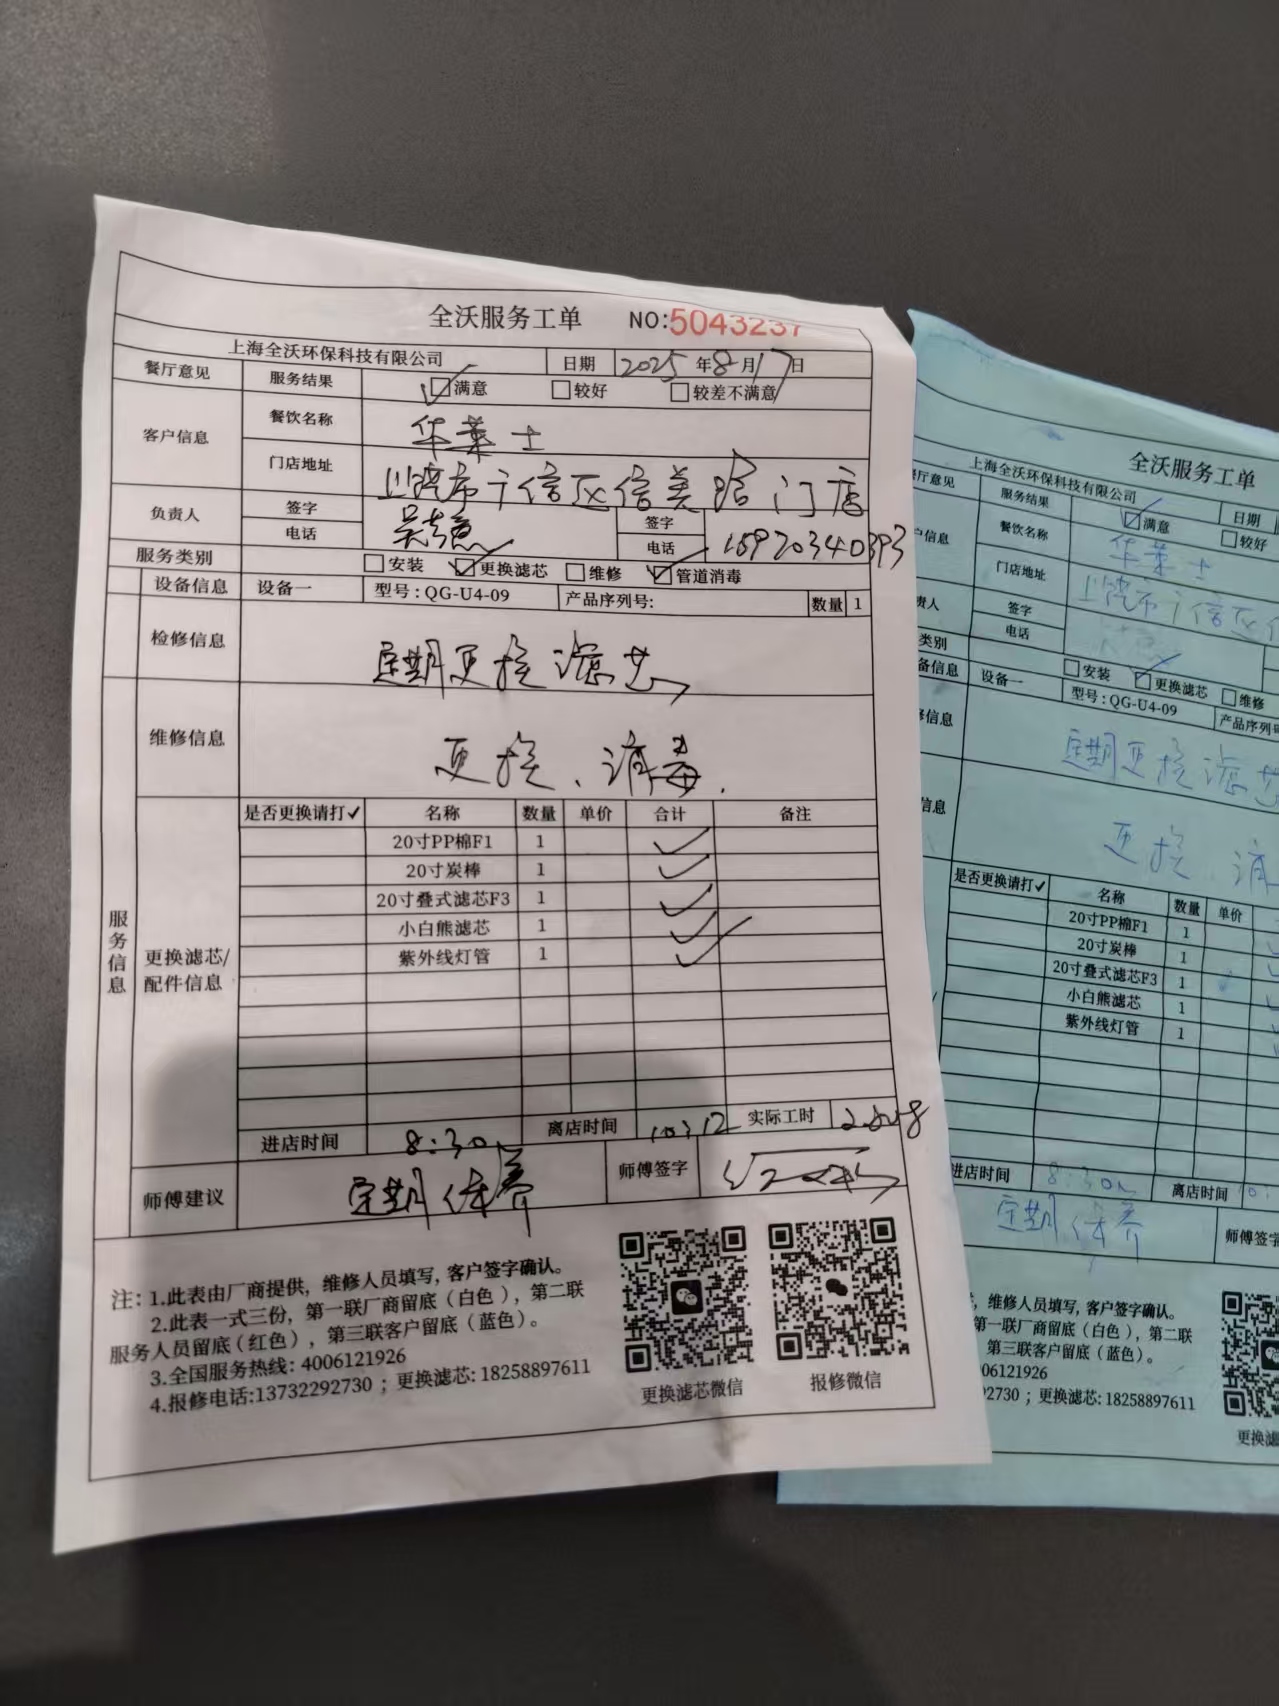 全沃服务工单 NO:5043237
上海全沃环保科技有限公司 日期 2025年8月17日
餐厅意见 服务结果 ☑满意 □较好 □较差不满意
客户信息 餐饮名称 华莱士
门店地址 上饶市广信区信美路门店
负责人 签字 签字
电话 电话 15970340393
服务类别 □安装 ☑更换滤芯 □维修 ☑管道消毒
设备信息 设备一 型号:QG-U4-09 产品序列号: 数量 1
检修信息 定期更换滤芯
维修信息 更换、消毒.
服务信息
更换滤芯/配件信息
是否更换请打✓ 名称 数量 单价 合计 备注
20寸PP棉F1 1 ✓
20寸炭棒 1 ✓
20寸叠式滤芯F3 1 ✓
小白熊滤芯 1 ✓
紫外线灯管 1 ✓
进店时间 8:30 离店时间 10:12 实际工时
师傅建议 定期保养 师傅签字
注: 1.此表由厂商提供，维修人员填写，客户签字确认。
2.此表一式三份，第一联厂商留底（白色），第二联
服务人员留底（红色），第三联客户留底（蓝色）。
3.全国服务热线: 4006121926
4.报修电话:13732292730 ；更换滤芯: 18258897611
更换滤芯微信 报修微信
全沃服务工单
上海全沃环保科技有限公司 日期
厅意见 服务结果 ☑满意 □较好
户信息 餐饮名称 华莱士
门店地址 上饶市广信区
责人 签字
电话
类别 □安装 ☑更换滤芯 □维修
备信息 设备一 型号:QG-U4-09 产品序列号
修信息 定期更换滤芯
信息 更换、消
是否更换请打✓ 名称 数量 单价
20寸PP棉F1 1
20寸炭棒 1
20寸叠式滤芯F3 1
小白熊滤芯 1
紫外线灯管 1
进店时间 8:30 离店时间 10:
定期保养 师傅签字
，维修人员填写，客户签字确认。
第一联厂商留底（白色），第二联
第三联客户留底（蓝色）。
06121926
92730 ；更换滤芯: 18258897611
更换滤